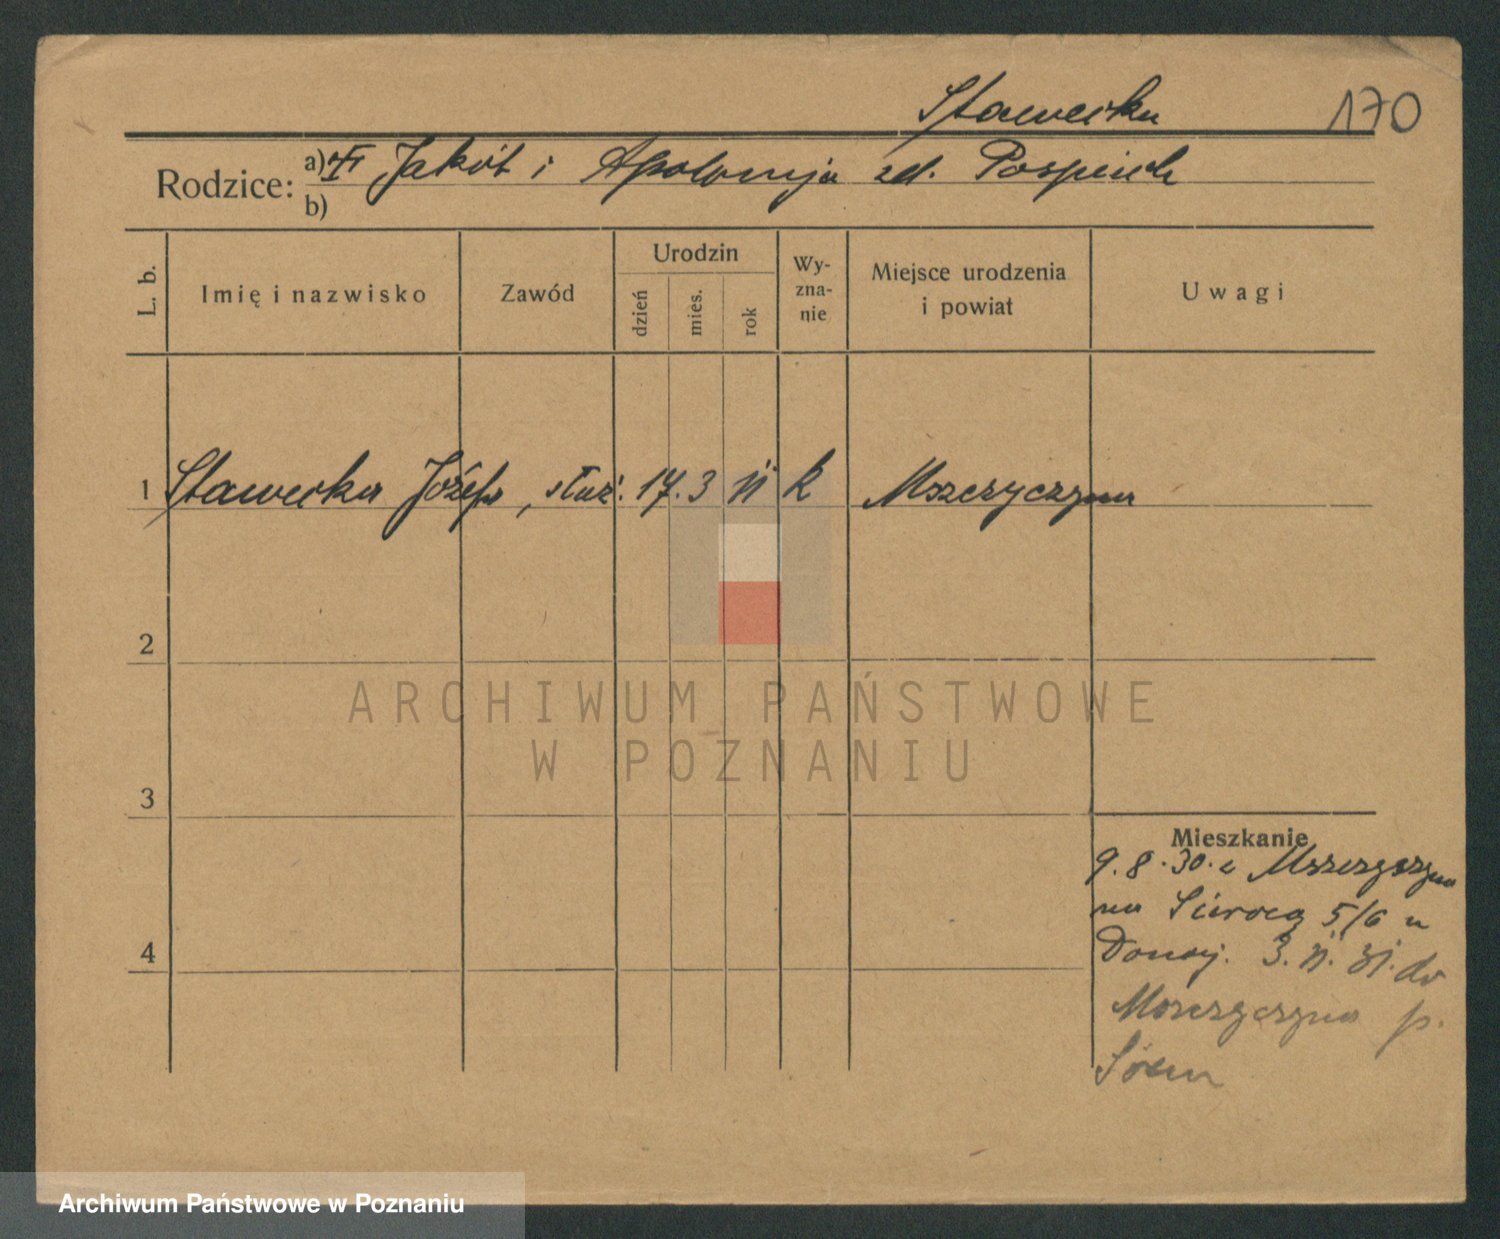 Stawecka
170
Rodzice: a) Jakób i Apolonja zd. Pospiech
b)
L. b.
Imię i nazwisko
Zawód
Urodzin
dzień
mies.
rok
Wy-
zna-
nie
Miejsce urodzenia
i powiat
Uwagi
1 Stawecka Józefa, służ. 17. 3 11 k Mszczyczyna
2
ARCHIWUM PAŃSTWOWE
W POZNANIU
3
Mieszkanie
9.8.30. z Mszczyczyna
na 5/6 u
3. 11. 31. do
Mszczyczyna p.
4
Archiwum Państwowe w Poznaniu